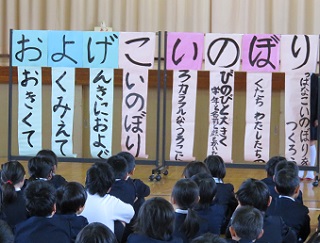 およげこいのぼり
おきくて
くみえて
んきにおよぐ
いのぼり
ろカラフルなうろこに
びのびと大きく
くたち わたしたちで
っぱなこいのぼりを
つくろう